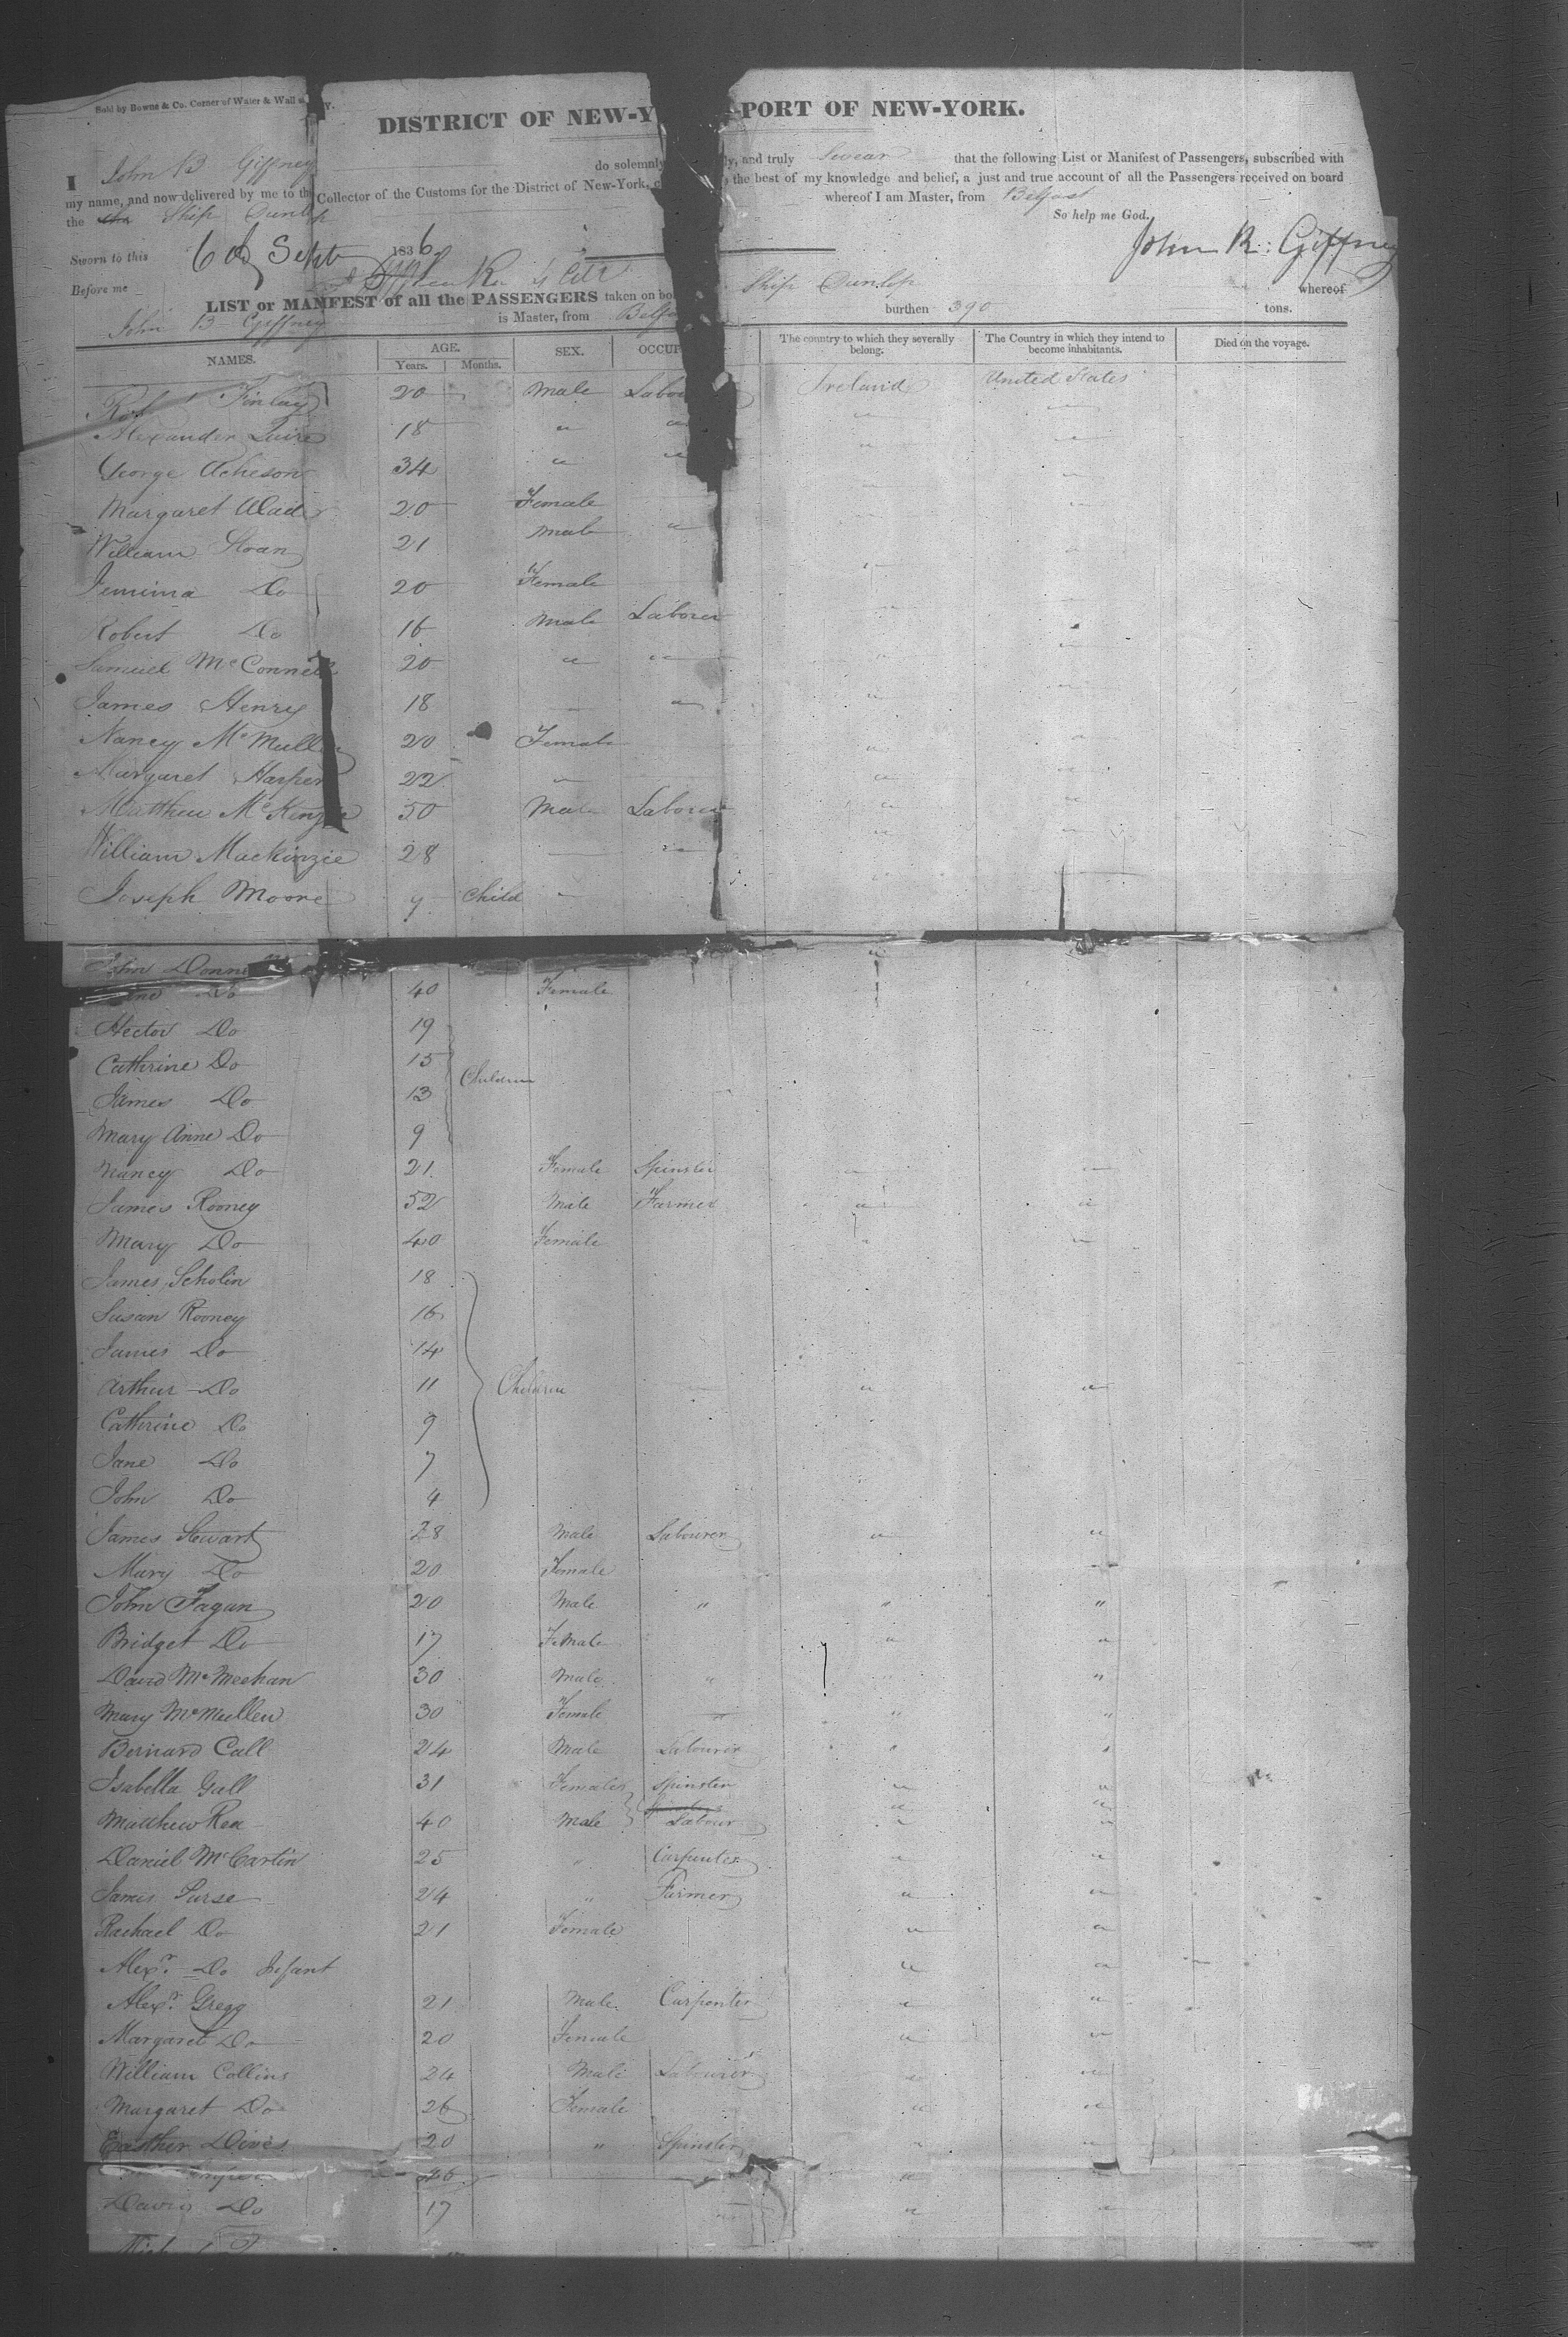 Sold by Bowne & Co. Corner of Water & Wall
DISTRICT OF NEW-Y PORT OF NEW-YORK.
I John B Giffney do solemnly, and truly Swear that the following List or Manifest of Passengers, subscribed with
my name, and now delivered by me to the Collector of the Customs for the District of New-York, the best of my knowledge and belief, a just and true account of all the Passengers received on board
the Ship Dunlop whereof I am Master, from Belfast
So help me God.
Sworn to this 6 of Sept 1836 John B: Giffney
Before me
LIST or MANFEST of all the PASSENGERS taken on bo Ship Dunlop whereof
John B Giffney is Master, from Belfa burthen 390 tons.
NAMES. AGE. Years. Months. SEX. OCCUP The country to which they severally belong. The Country in which they intend to become inhabitants. Died on the voyage.
Finlay 20 Male Labo Ireland United States
Alexander 18 " "
George Acheson 34 " "
Margaret 20 Female
William Sloan 21 Male "
Jemima Do 20 Female
Robert Do 16 Male Laborer
Samuel McConnell 20 " "
James Henry 18 "
Nancy McMulle 20 Female
Margaret Harper 22 "
Matthew McKenzie 50 Male Laborer
William Mackinzie 28 "
Joseph Moore 9 Child "
John Donn
Do 40 Female
Hector Do 19
Catherine Do 15
Children
James Do 13
Mary Anne Do 9
Nancy Do 21 Female Spinster " "
James Rooney 52 Male Farmer " "
Mary Do 40 Female " "
James Scholin 18
Susan Rooney 16
James Do 14
Arthur Do 11 Children " "
Catherine Do 9
Jane Do 7
John Do 4
James Stewart 28 Male Labourer " "
Mary Do 20 Female "
John Fagan 20 Male " " "
Bridget Do 17 Female " "
David McMeehan 30 Male " "
Mary McMullen 30 Female " " "
Bernard Call 24 Male Labourer " "
Isabella Gall 31 Female Spinster " "
Matthew Rea 40 Male Labour " "
Daniel McCartin 25 " Carpenter " "
James Purse 24 " Farmer " "
Rachael Do 21 Female " "
Alexr. Do Infant " "
Alexr. Gregg 21 Male Carpenter " "
Margaret Do 20 Female " "
William Collins 24 Male Labourer " "
Margaret Do 26 Female " "
Easther 20 " Spinster " "
46 "
David Do 17 " "